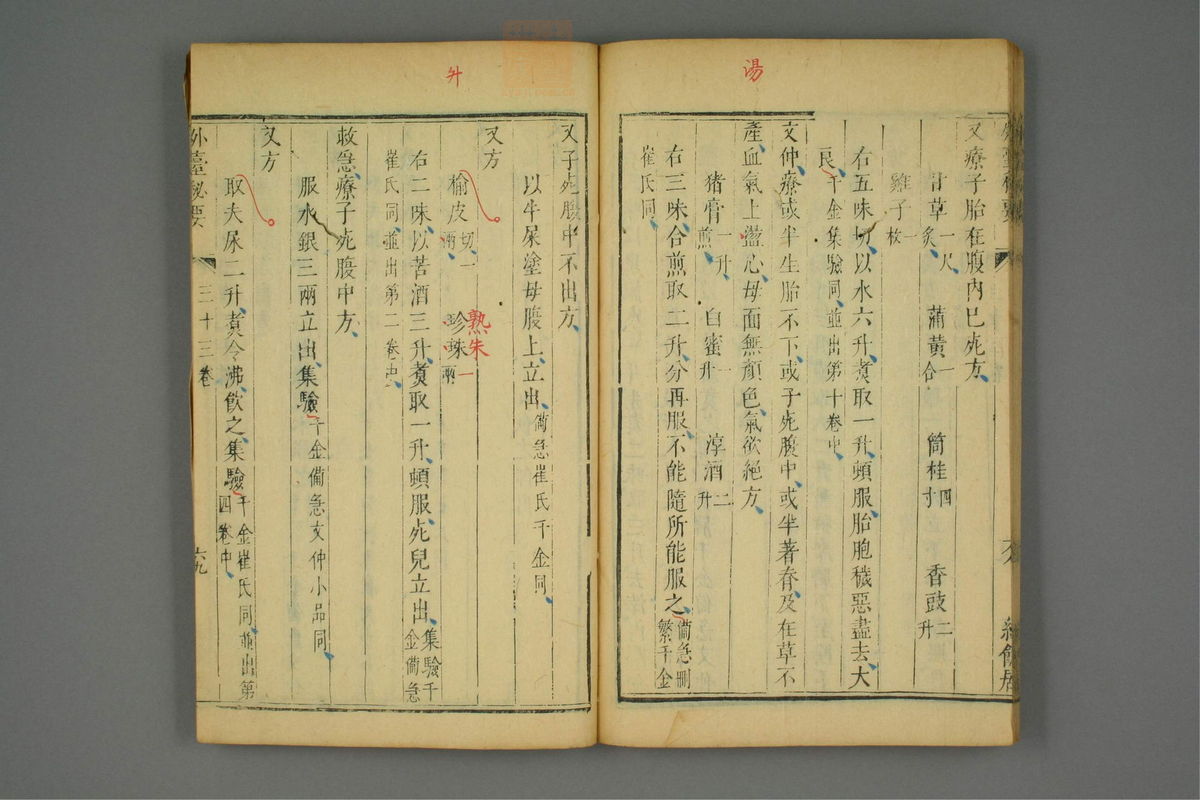 湯
又療子胎在腹內已死方
甘草一尺炙 蒲黃一合 筒桂四寸 香豉二升
雞子一枚
右五味切以水六升煑取一升頓服胎胞穢惡盡去大
良千金集驗同並出第十卷中
文仲療或半生胎不下或子死腹中或半著脊及在草不
產血氣上盪心母面無顏色氣欲絕方
猪膏一升煎 白蜜一升 淳酒二升
右三味合煎取二升分再服不能隨所能服之備急刪繁千金
崔氏同
外
又子死腹中不出方
以牛屎塗母腹上立出備急崔氏千金同
又方
榆皮切一兩 珍珠一兩
熟朱
右二味以苦酒三升煑取一升頓服死兒立出集驗千金備急
崔氏同並出第二卷中
救急療子死腹中方
服水銀三兩立出集驗千金備急文仲小品同
又方
取夫尿二升煑令沸飲之集驗千金崔氏同並出第四卷中
外臺秘要 三十三卷 六九